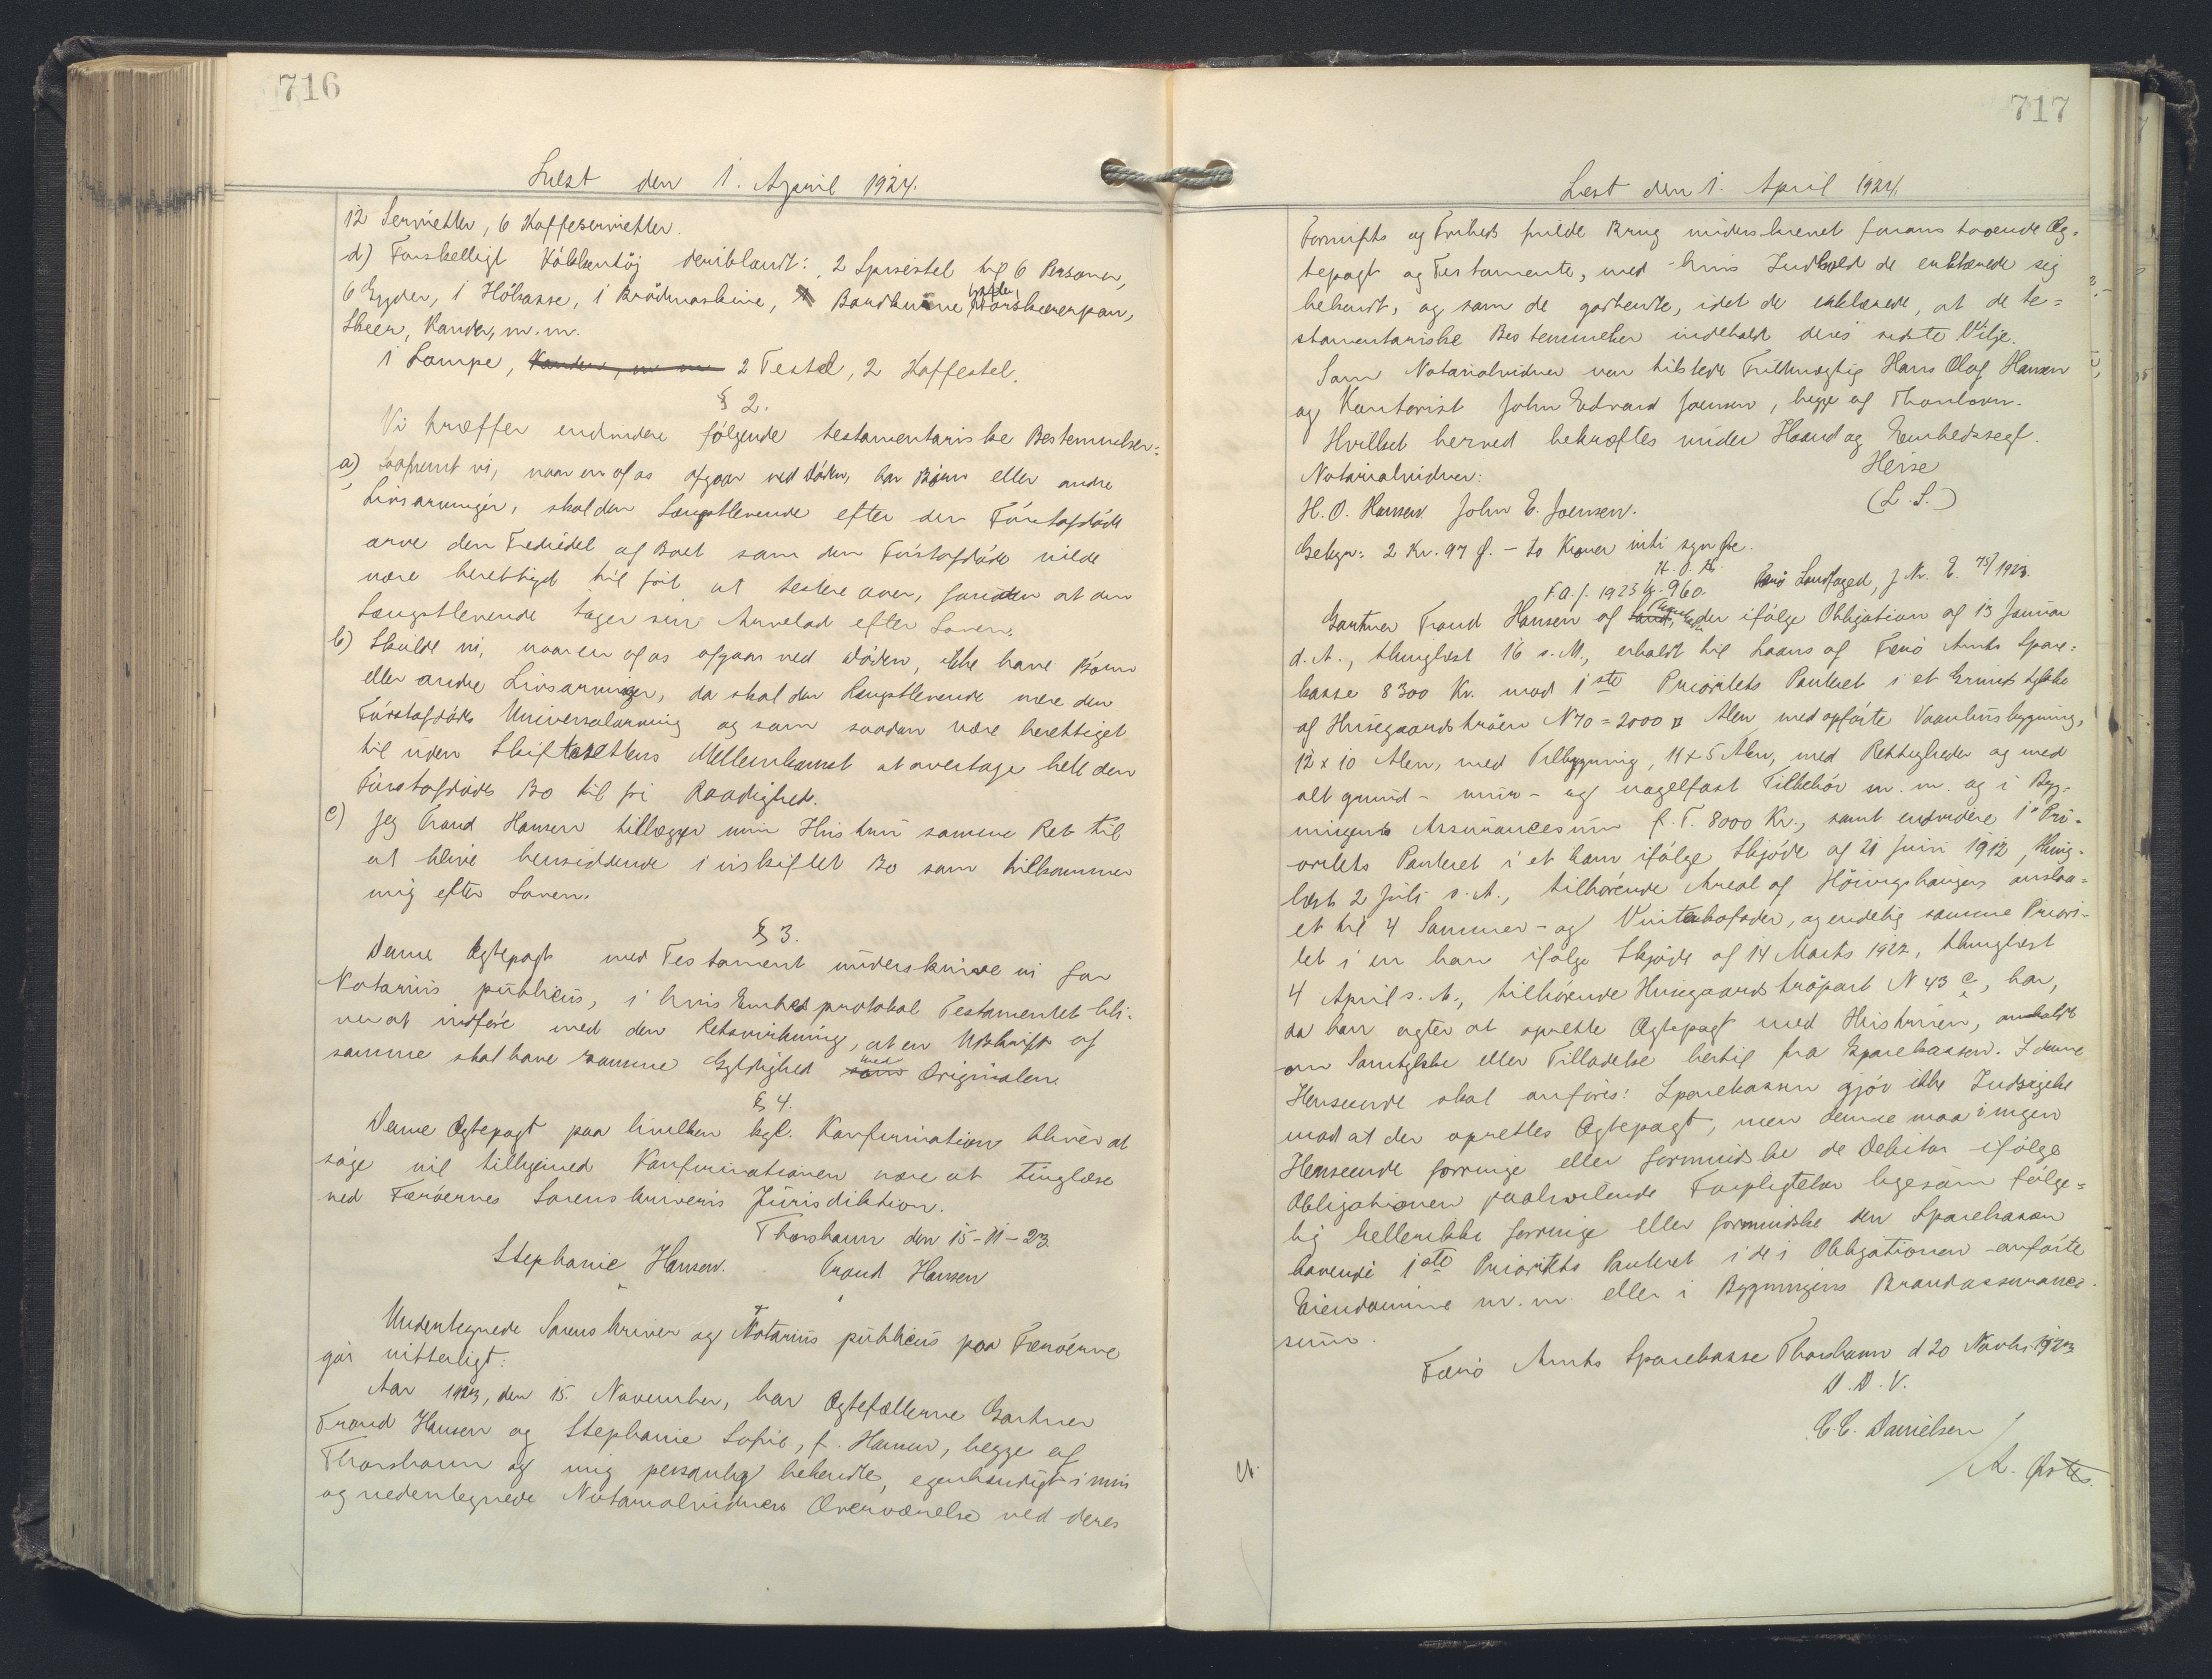 716
Læst den 1. April 1924.
12 Servietter, 6 Kaffeservietter.
d) Forskelligt Kökkentöj deriblandt: 2 Spisestel til 6 Personer,
6 Gryder, 1 Hökasse, 1 Brödmaskine, Bordknive
Skeer, Kander, m.m.
1 Lampe, Kander, m m 2 Testel, 2 Kaffestel.
§ 2.
Vi træffer endvidere følgende testamentariske Bestemmelser:
a) Saafremt vi, naar en af os afgaar ved Döden, har Börn eller andre
Livsarvinger, skal den Længstlevende efter den Förstafdöde
arve den Trediedel af Boet som den Förstafdöde vilde
være berettiget til frit at testere over, foruden at den
Længstlevende tager sin Arvelod efter Loven.
b) Skulde vi, naar en af os afgaar ved Döden, ikke have Börn
eller andre Livsarvinger, da skal den Længstlevende være den
Förstafdödes Universalarving og som saadan være berettiget
til uden Skifterettens Mellemkomst at overtage helt den
Förstafdödes Bo til fri Raadighed.
c) Jeg Trond Hansen tillægger min Hustru samme Ret til
at blive hensiddende i uskiftet Bo som tilkommer
mig efter Loven.
§ 3.
Denne Ægtepagt med Testament underskrive vi for
Notarius publicus, i hvis Embedsprotokol Testamentet bli-
ver at indføre med den Retsvirkning, at en Udskrift af
samme skal have samme Gyldighed som med Originalen.
§ 4.
Denne Ægtepagt paa hvilken kgl. Konfirmation bliver at
söge vil tilligemed Konfirmationen være at tinglæse
ved Færöernes Sorenskriveris Jurisdiktion.
Thorshavn den 15-11-23.
Stephanie Hansen. Trond Hansen
Undertegnede Sorenskriver og Notarius publicus paa Færöerne
gör vitterligt:
Aar 1923, den 15. November, har Ægtefællerne Gartner
Trond Hansen og Stephanie Sofie, f. Hansen, begge af
Thorshavn og mig personlig bekendte, egenhændigt i min
og nedentegnede Notarialvidners Overværelse ved deres
717
Læst den 1. April 1924.
Fornufts og Friheds fulde Brug underskrevet foranstaaende Æg-
tepagt og Testamente, med hvis Indhold de erklærede sig
bekendt, og som de godkendte, idet de erklærede, at de te-
stamentariske Bestemmelser indeholdt deres sidste Vilje.
Som Notarialvidner var tilstede Fuldmægtig Hans Olaf Hansen
og Kontorist John Edvard Joensen, begge af Thorshavn.
Hvilket herved bekræftes under Haand og Embedssegl.
Heise
Notarialvidner:
(L.S.)
H.O. Hansen. John E. Joensen.
Gebyr: 2 Kr. 97 Ø. - to Kroner niti syv Øre.
F.a.f. 1923 Færö Landfoged, J Nr. E. 75/1923.
Gartner Trond Hansen af der ifölge Obligation af 13 Januar
d.A., thinglæst 16 s.M., erholdt til Laans af Færö Amts Spare-
kasse 8300 Kr. mod 1ste Prioritets Panteret i et Grundstykke
af Husegaardströen N 70 = 2000 □ Alen med opförte Vaanhusbygning,
12 x 10 Alen, med Tilbygning, 11 x 5 Alen, med Rettigheder og med
alt grund- mur- og nagelfast Tilbehör m.m. og i Byg-
ningens Assurancesum f.T. 8000 Kr., samt endvidere 1' Pri-
oritets Panteret i et ham ifölge Skjöde af 21 Juni 1912, thing-
læst 2 Juli s.A., tilhörende Areal af anslaa-
et til 4 Sommer- og Vinterhofoder, og endelig samme Priori-
tet i en ham ifölge Skjöde af 14 Marts 1922, thinglæst
4 April s.A., tilhörende Husegaardströpart N 43 c, har,
da han agter at oprette Ægtepagt med Hustruen, anholdt
om Samtykke eller Tilladelse hertil fra Sparekassen. I denne
Henseende skal anföres: Sparekassen gjör ikke Indsigelse
mod at der oprettes Ægtepagt, men denne maa i ingen
Henseende forringe eller formindske de Debitor ifölge
Obligationen paahvilende Forpligtelser ligesom fölge-
lig hellerikke forringe eller formindske den Sparekassen
havende 1ste Prioritets Panteret i de i Obligationen anförte
Eiendomme m.m. eller i Bygningens Brandassurance-
sum.
Færö Amts Sparekasse Thorshavn d 20 Novbr. 1923
P.D.V.
C.C. Danielsen